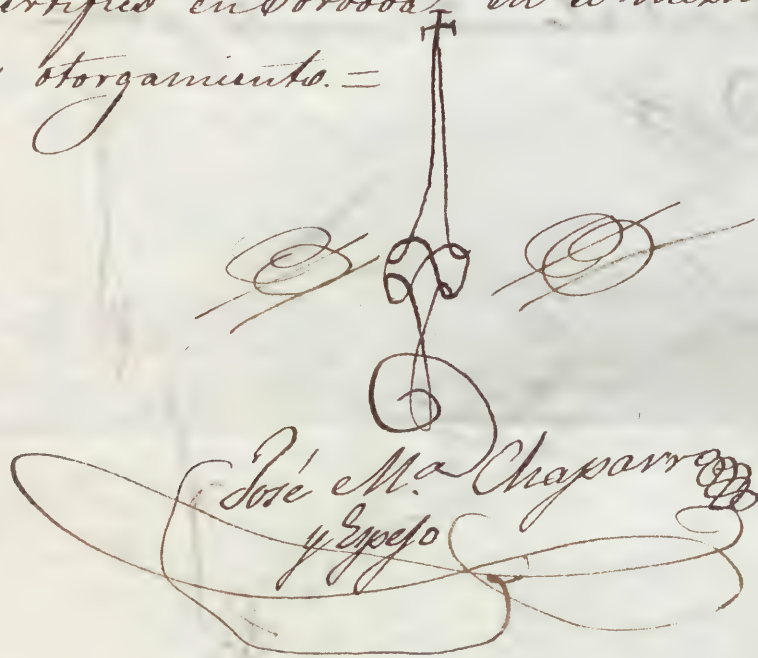 en Cordova en el
otorgamiento.=
José M.ª Chaparro
y Espejo